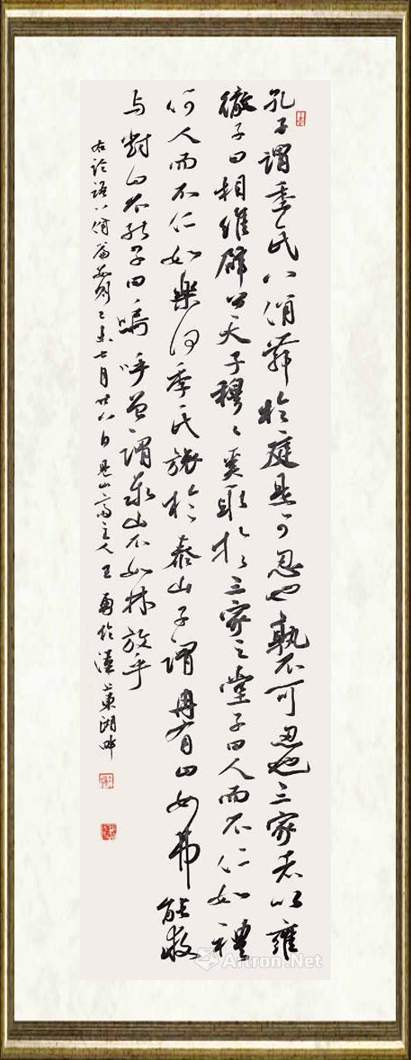 孔子謂季氏八佾舞於庭是可忍也孰不可忍也三家者以雍
徹子曰相維辟公天子穆〻奚取於三家之堂子曰人而不仁如禮
何人而不仁如樂何季氏旅於泰山子謂冉有曰女弗能救
与對曰不能子曰嗚呼曾謂泰山不如林放乎
右论語八佾篇則乙未七月廿八日見山齋主人王勇於漢上東湖畔
Artron.Net